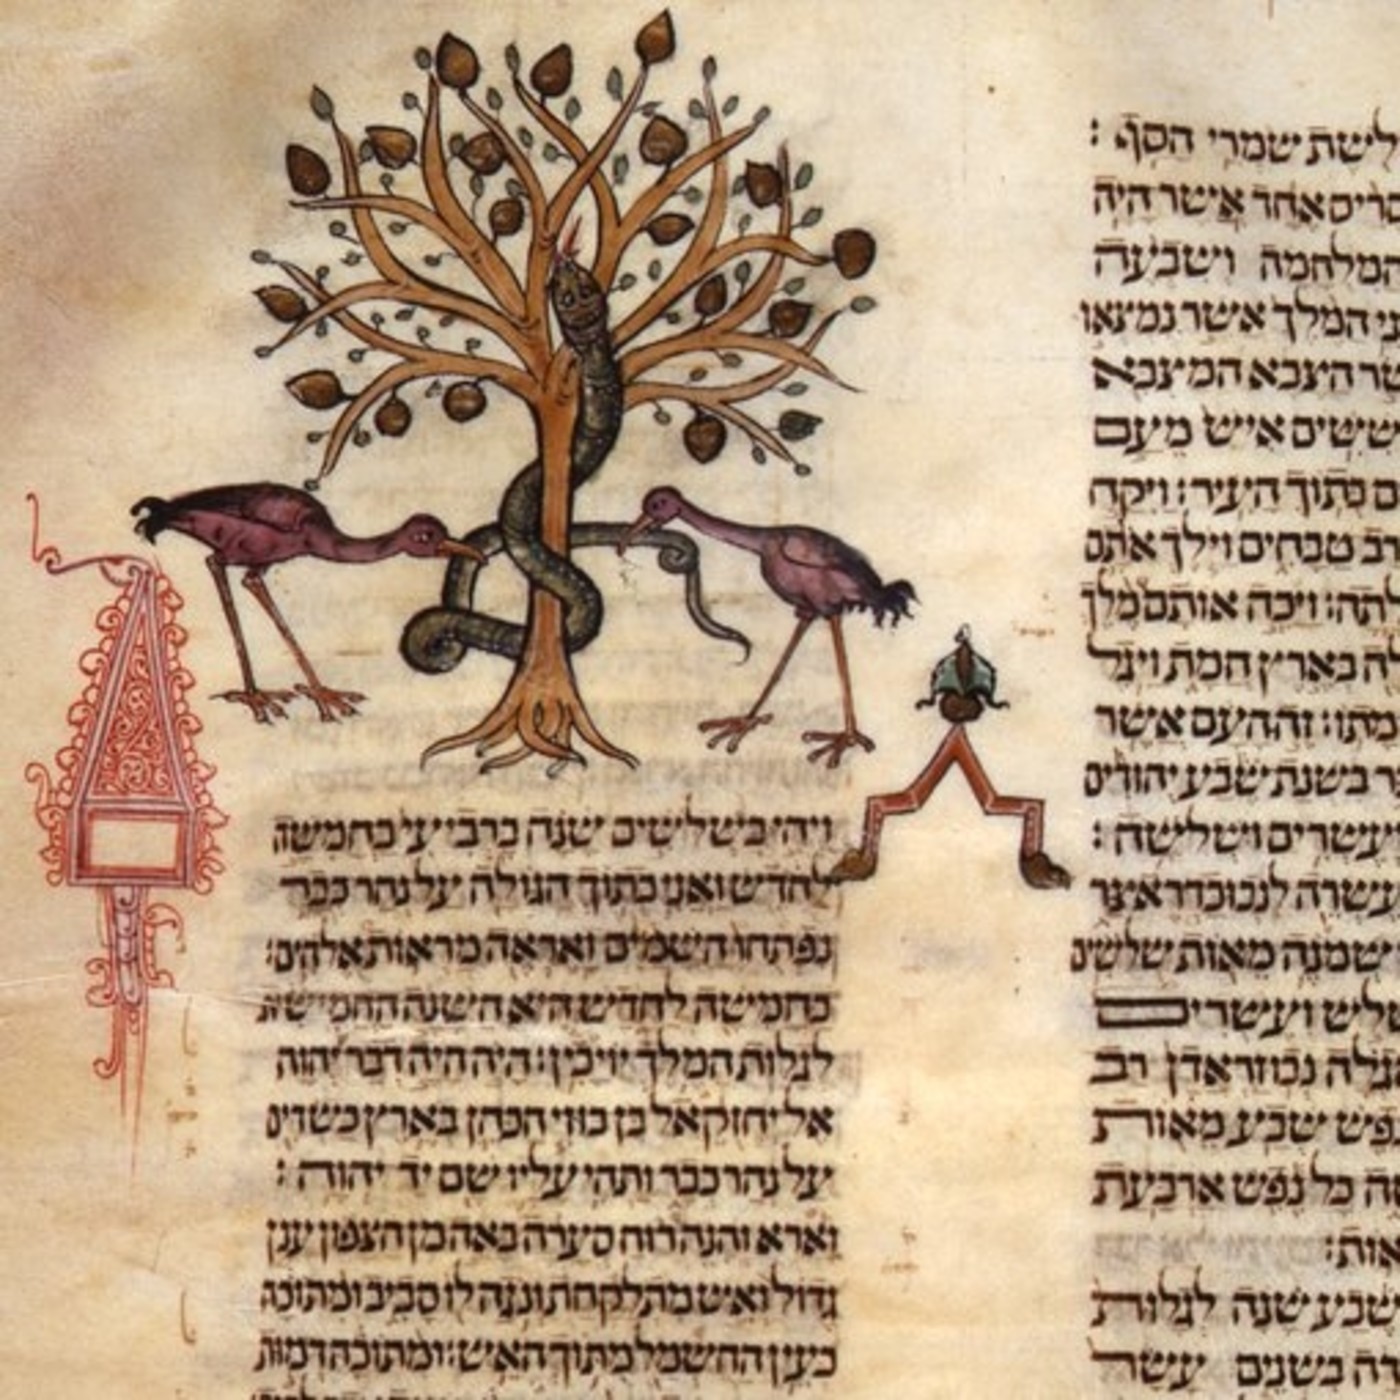 לשת שמרי הסף :
ריס אחד אשר היה
המלחמה ושבעה
ני המלך אשר נמצאו
שר הצבא המצבא
ששים איש מעם
ם בתוך העיר : ויקח
רב טבחים וילך אתם
לתה : ויכה אותם מלך
לה בארץ חמת ויגל
מתו : זה העם אשר
ר בשנת שבע יהודים
עשרים ושלשה :
עשרה לנבוכדראצר
שמנה מאות שלשים
שלש ועשרים
הגלה נבוזראדן רב
נפש שבע מאות
ה כל נפש ארבעת
אות :
שבע שנה לגלות
ה בשנים עשר
ויהי בשלשים שנה ברביעי בחמשה
לחדש ואני בתוך הגולה על נהר כבר
נפתחו השמים ואראה מראות אלהים :
בחמישה לחדש היא השנה החמישית
לגלות המלך יויכין : היה היה דבר יהוה
אל יחזקאל בן בוזי הכהן בארץ כשדים
על נהר כבר ותהי עליו שם יד יהוה :
וארא והנה רוח סערה באה מן הצפון ענן
גדול ואש מתלקחת ונגה לו סביב ומתוכה
כעין החשמל מתוך האש : ומתוכה דמות